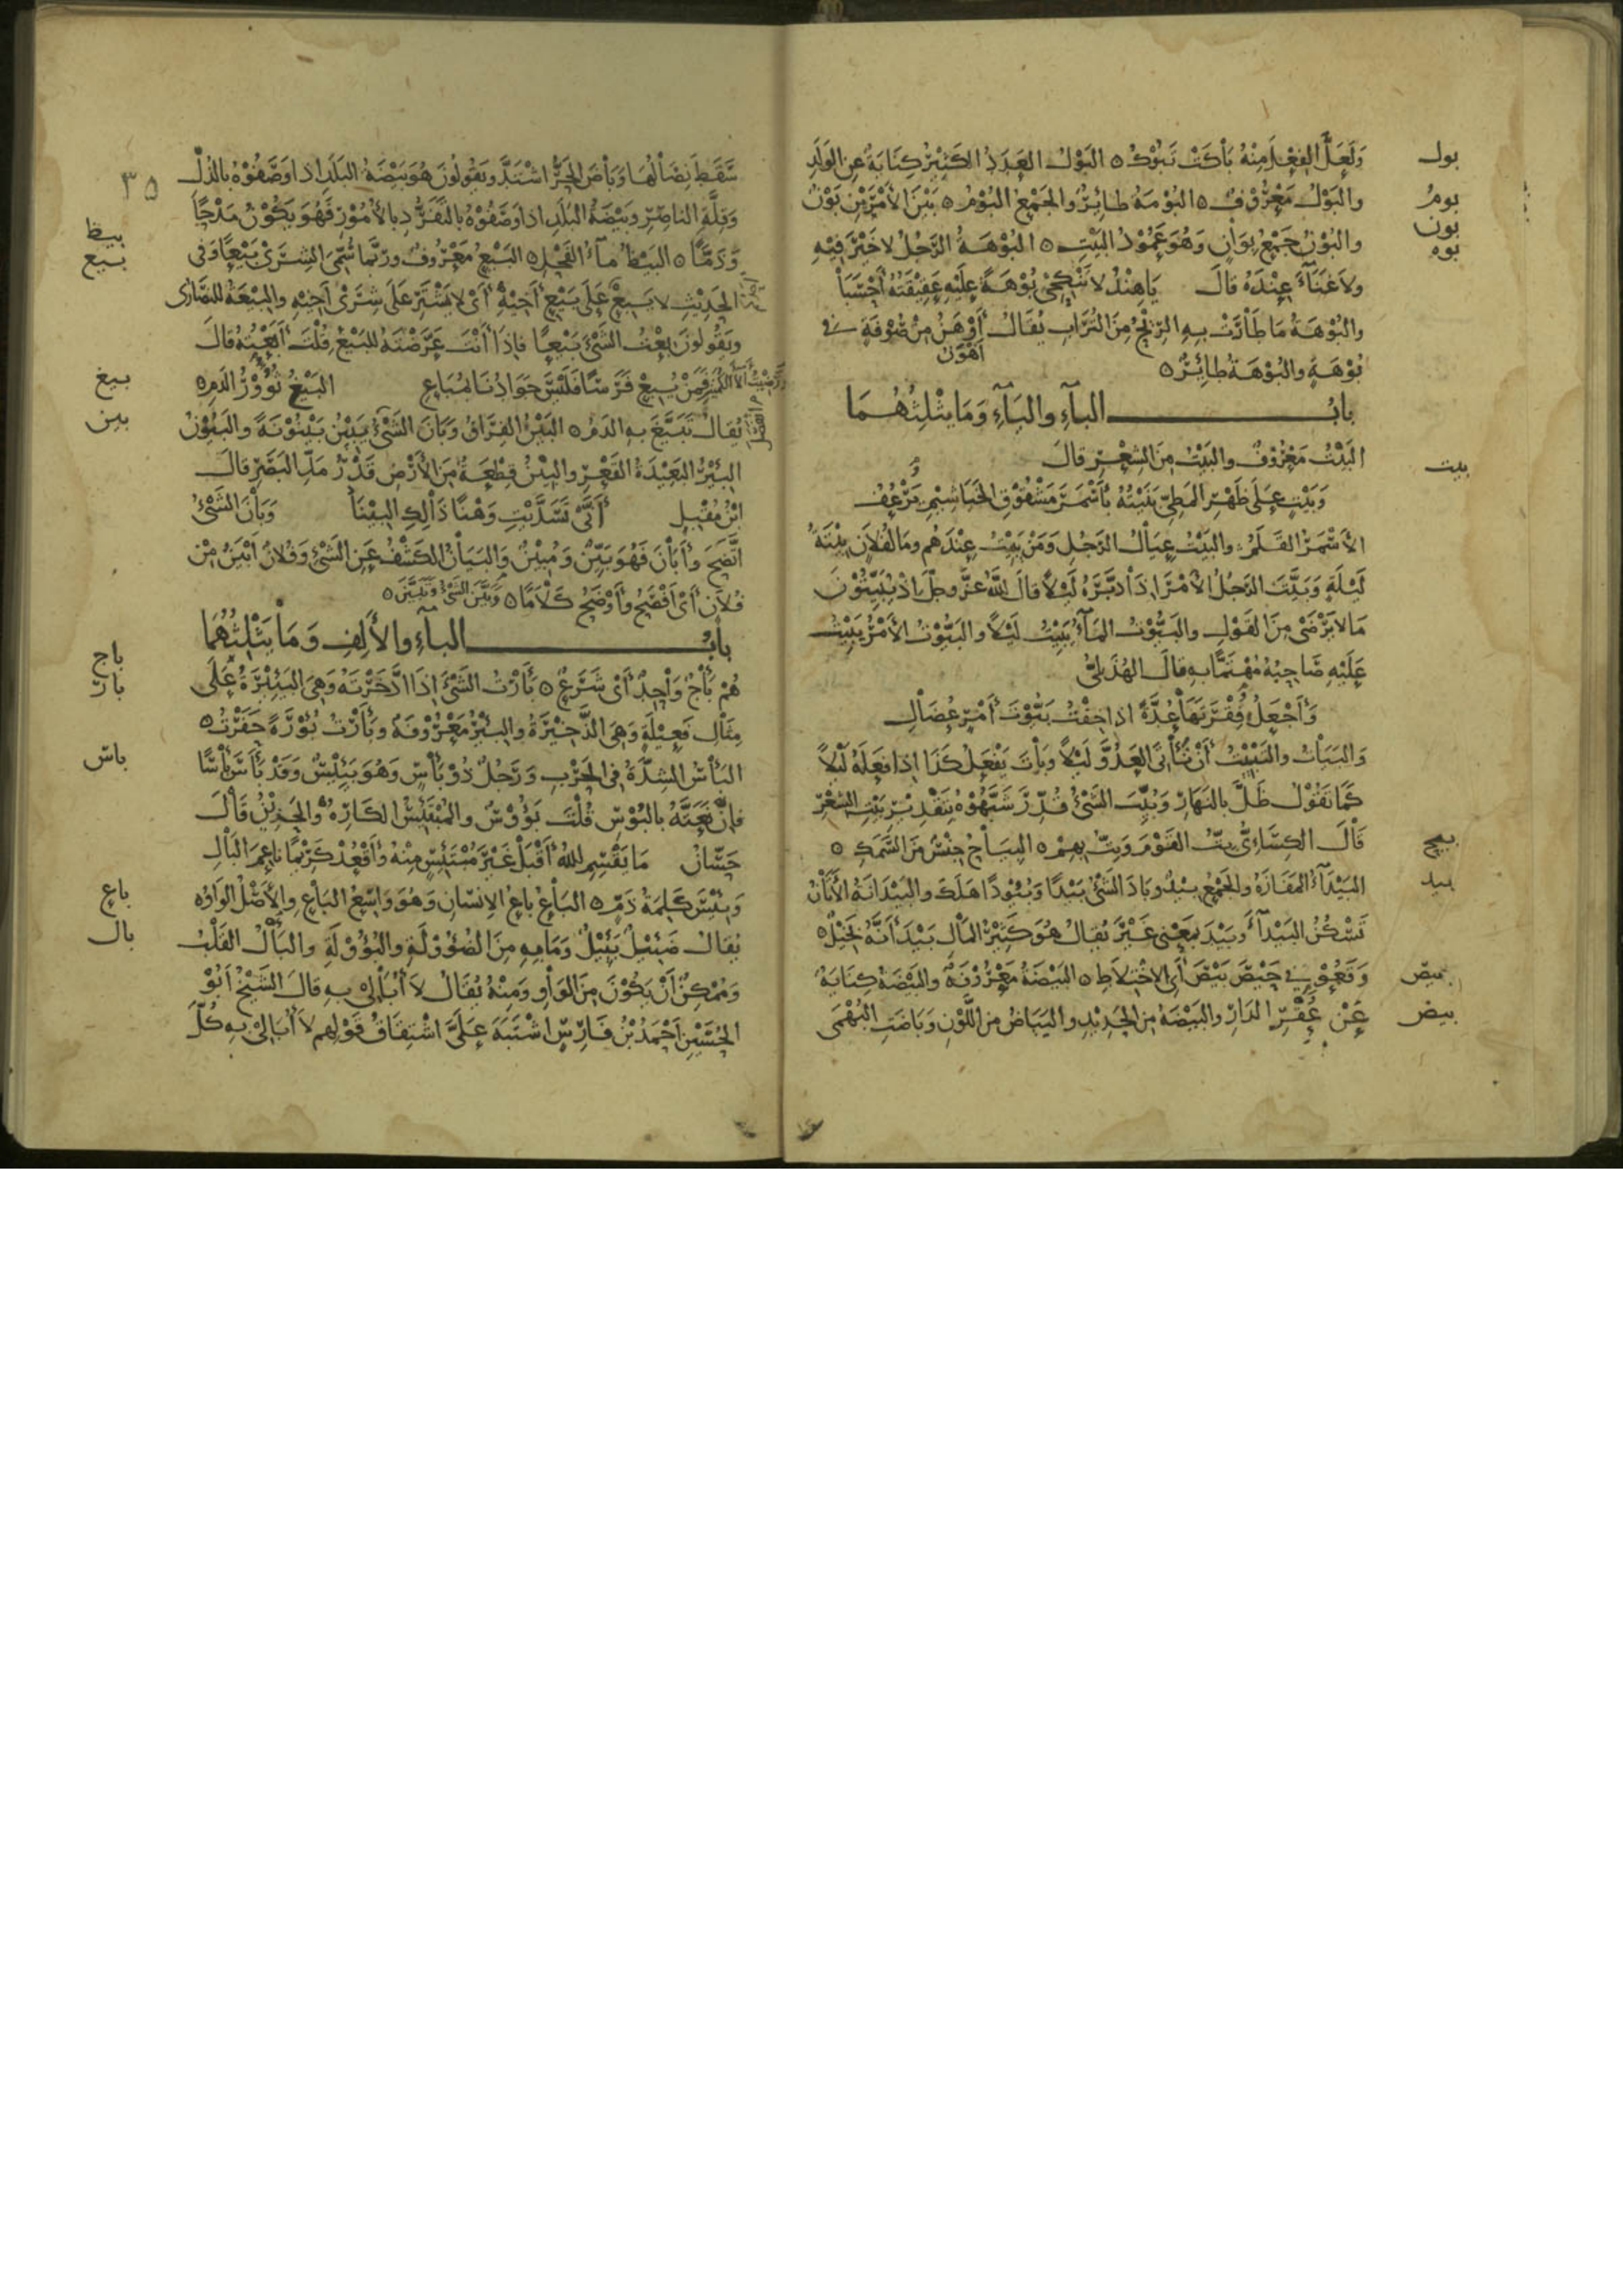 بول
وَلَعَلَّ الفِعْلَ مِنْهُ بَاكَتْ تَبُوْكُ ٥ البَوْلُ العَدَدُ الكَثِيْرُ كِنَايَةً عَنِ الوَلَدِ
بوم
والبَوْلُ مَعْرُوْفٌ ٥ البُوْمَةُ طَائِرٌ والجَمْعُ البُوْمُ ٥ بَيْنَ الأَمْرَيْنِ بَوْنٌ
بون
والبُوْنُ جَمْعُ بِوَانٍ وَهُوَ عَمُوْدُ البَيْتِ ٥ البُوْهَةُ الرَّجُلُ لا خَيْرَ فِيْهِ
بوه
ولا غَنَآءَ عِنْدَهُ قَالَ يَا هِنْدُ لا تَنْكِحِيْ بُوْهَةً عَلَيْهِ عَقِيْقَتُهُ أَحْسَبَا
والبُوْهَةُ مَا طَارَتْ بِهِ الرِّيْحُ مِنَ التُّرَابِ يُقَالُ أَوْهَنُ مِنْ صُوْفَةٍ في
أهْوَنُ
بُوْهَةٍ والبُوْهَةُ طَائِرٌ ٥
بابُ البآءِ واليَآءِ وَمَا يَثْلِثُهُمَا
بيت
البَيْتُ مَعْرُوْفٌ والبَيْتُ مِنَ الشِّعْرِ قَالَ
وَبَيْتٍ عَلَى ظَهْرِ المَطِيِّ بَنَيْتُهُ بِأَسْمَرَ مَشْقُوْقِ الخَيَاشِيْمِ يَرْعُفُ
الأَسْمَرُ القَلَمُ والبَيْتُ عِيَالُ الرَّجُلِ وَمَنْ يَبِيْتُ عِنْدَهُمْ وَمَا لِفُلَانٍ بِيْتَةُ
لَيْلَةٍ وَبَيَّتَ الرَّجُلُ الأَمْرَ إِذَا دَبَّرَهُ لَيْلاً قَالَ اللهُ عَزَّ وجلّ إِذْ يُبَيِّتُوْنَ
مَالا يَرْضَى مِنَ القَوْلِ والبَيُّوْتُ المَآءُ يَبِيْتُ لَيْلاً والبَيُّوْتُ الأَمْرُ يَبِيْتُ
عَلَيْهِ صَاحِبُهُ مُهْتَمًّا بِهِ قَالَ الهُذَلِيُّ
وَأَجْعَلُ فُقْرَتَهَا عُدَّةً إذا خِفْتُ بَيُّوْتَ أَمْرٍ عُضَالِ
وَالبَيَاتُ والتَّبْيِيْتُ أَنْ تَأْتِيَ العَدُوَّ لَيْلاً وَبَاتَ يَفْعَلُ كَذَا إذا فَعَلَهُ لَيْلاً
كَمَا تَقُوْلُ ظَلَّ بِالنَّهَارِ وَبُيِّتَ الشَّيْءُ قُدِّرَ شَبَّهُوْهُ بِتَقْدِيْرِ بَيْتِ الشِّعْرِ
بيج
قَالَ الكِسَائِيُّ بِتُّ القَوْمَ وَبِتُّ بِهِمْ ٥ البِيَاحُ جِنْسٌ مِنَ السَّمَكِ ٥
بيد
البَيْدَآءُ المَفَازَةُ والجَمْعُ بِيْدٌ وبَادَ الشَّيْءُ بَيْدًا وَبُيُوْدًا هَلَكَ والبَيْدَانَةُ الأَتَانُ
تَسْكُنُ البَيْدَآءَ وبَيْدَ بِمَعْنى غَيْرَ يُقَالُ هُوَ كَثِيْرُ المَالِ بَيْدَ أَنَّهُ بَخِيْلٌ ٥
بيص
وَقَعُوْا في حَيْصَ بَيْصَ أَيْ الاخْتِلاَطِ ٥ البَيْضَةُ مَعْرُوْفَةٌ والبَيْضَةُ كِنَايَةٌ
بيض
عَنْ عُقْرِ الدَّارِ والبَيْضَةُ مِنَ الحَدِيْدِ والبَيَاضُ مِنَ اللَّوْنِ وَبَاضَتِ البُهْمَى
٣٥
سَقَطَ نِصَالُهَا وَبَاضَ الحَرُّ اشْتَدَّ ويَقُولُونَ هُوَ بَيْضَةُ البَلَدِ إذا وَصَفُوْهُ بِالذُّلِّ
وَقِلَّةِ الناصِرِ وبَيْضَةُ البَلَدِ إذا وَصَفُوْهُ بِالتَّفَرُّدِ بِالأُمُوْرِ فَهُوَ يَكُوْنُ مَدْحًا
بيظ
وَذَمًّا ٥ البَيْظُ مآءُ الفَحْلِ ٥ البَيْعُ مَعْرُوفٌ ورُبَّمَا سُمِّيَ الشِّرَى بَيْعًا وَفِي
بيع
الحَدِيْثِ لا يَبِيْعُ عَلَى بَيْعِ أَخِيْهِ أَيْ لا يَشْتَرِ عَلَى شِرَى أَخِيْهِ والبِيْعَةُ للنَّصَارَى
ويَقُولُونَ بِعْتُ الشَّيْءَ بَيْعًا فَإِذَا أَنْتَ عَرَّضْتَهُ لِلبَيْعِ قُلْتَ أَبَعْتُهُ قَالَ
بيغ
وَرَضِيْتُ آلاَءَ الكُمَيْتِ فَمَنْ يُبِعْ فَرَسًا فَلَيْسَ جَوَادُنَا بِمُبَاعِ البَيْغُ ثُؤُوْرُ الدَّمِ ٥
بين
يُقَالُ تَبَيَّغَ بِهِ الدَّمُ ٥ البَيْنُ الفِرَاقُ وَبَانَ الشَّيْءُ يَبِيْنُ بَيْنُوْنَةً والبَيُوْنُ
البِئْرُ البَعِيْدَةُ القَعْرِ والبِيْنُ قِطْعَةٌ مِنَ الأَرْضِ قَدْرُ مَدِّ البَصَرِ قَالَ
ابْنُ مُقْبِلٍ أَنَّى تَسَدَّيْتِ وَهْنًا ذَالِكِ البِيْنَا وَبَانَ الشَّيْءُ
اتَّضَحَ وأَبَانَ فَهُوَ بَيِّنٌ وَمُبِيْنٌ وَالبَيَانُ الكَشْفُ عَنِ الشَّيْءِ وَفُلاَنٌ أَبْيَنُ مِنْ
فُلاَنٍ أَيْ أَفْصَحُ وأَوْضَحُ كَلاَمًا ٥ وَبَيَّنَ الشَّيْءُ وَتَبَيَّنَ ٥
بابُ البآءِ والأَلِفِ وَمَا يَثْلِثُهُمَا
باج
هُمْ بَأْجٌ وَاحِدٌ أَيْ شَرَعٌ ٥ بَأَرْتُ الشَّيْءَ إِذَا ادَّخَرْتَهُ وَهِيَ البَئِيْرَةُ عَلَى
بار
مِثَالِ فَعِيْلَةٍ وَهِيَ الذَّخِيْرَةُ والبِئْرُ مَعْرُوْفَةٌ وبَأَرْتُ بُؤْرَةً حَفَرْتُ ٥
باس
البَأْسُ الشِّدَّةُ فِي الحَرْبِ وَرَجُلٌ ذُوْ بَأْسٍ وَهُوَ بَئِيْسٌ وَقَدْ بَأَسَ بَأْسًا
فَإِنْ نَعَتَّهُ بِالبُؤْسِ قُلْتَ بَؤُوْسٌ والمُبْتَئِسُ الكَارِهُ والحَزِيْنُ قَالَ
حَسَّانُ مَا يَقْسِمِ اللهُ أَقْبَلْ غَيْرَ مُبْتَئِسٍ مِنْهُ وأَقْعُدْ كَرِيْمًا نَاعِمَ البَالِ
باع
وَبِئْسَ كَلِمَةُ ذَمٍّ ٥ البَاعُ بَاعُ الإنْسَانِ وَهُوَ وَاسِعُ البَاعِ والأَصْلُ الوَاوُ ٥
بال
يُقَالُ ضَئِيْلٌ بَئِيْلٌ وَمَا بِهِ مِنَ الضُّؤُوْلَةِ والبُؤُوْلَةِ والبَالُ القَلْبُ
وَمُمْكِنٌ أَنْ يَكُوْنَ مِنَ الوَاوِ وَمِنْهُ يُقَالُ لاَ أُبَالِيْ بِهِ قَالَ الشَّيْخُ أَبُوْ
الحُسَيْنِ أَحْمَدُ بْنُ فَارِسٍ اشْتَبَهَ عَلَيَّ اشْتِقَاقُ قَوْلِهِمْ لاَ أُبَالِيْ بِهِ كُلَّ